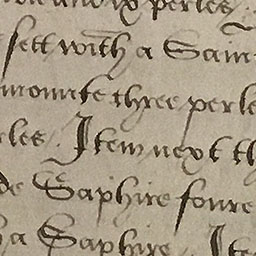 and ix perles
sett with a Sa
mounte three perle
les Item next th
de Saphire foure
a Saphire It